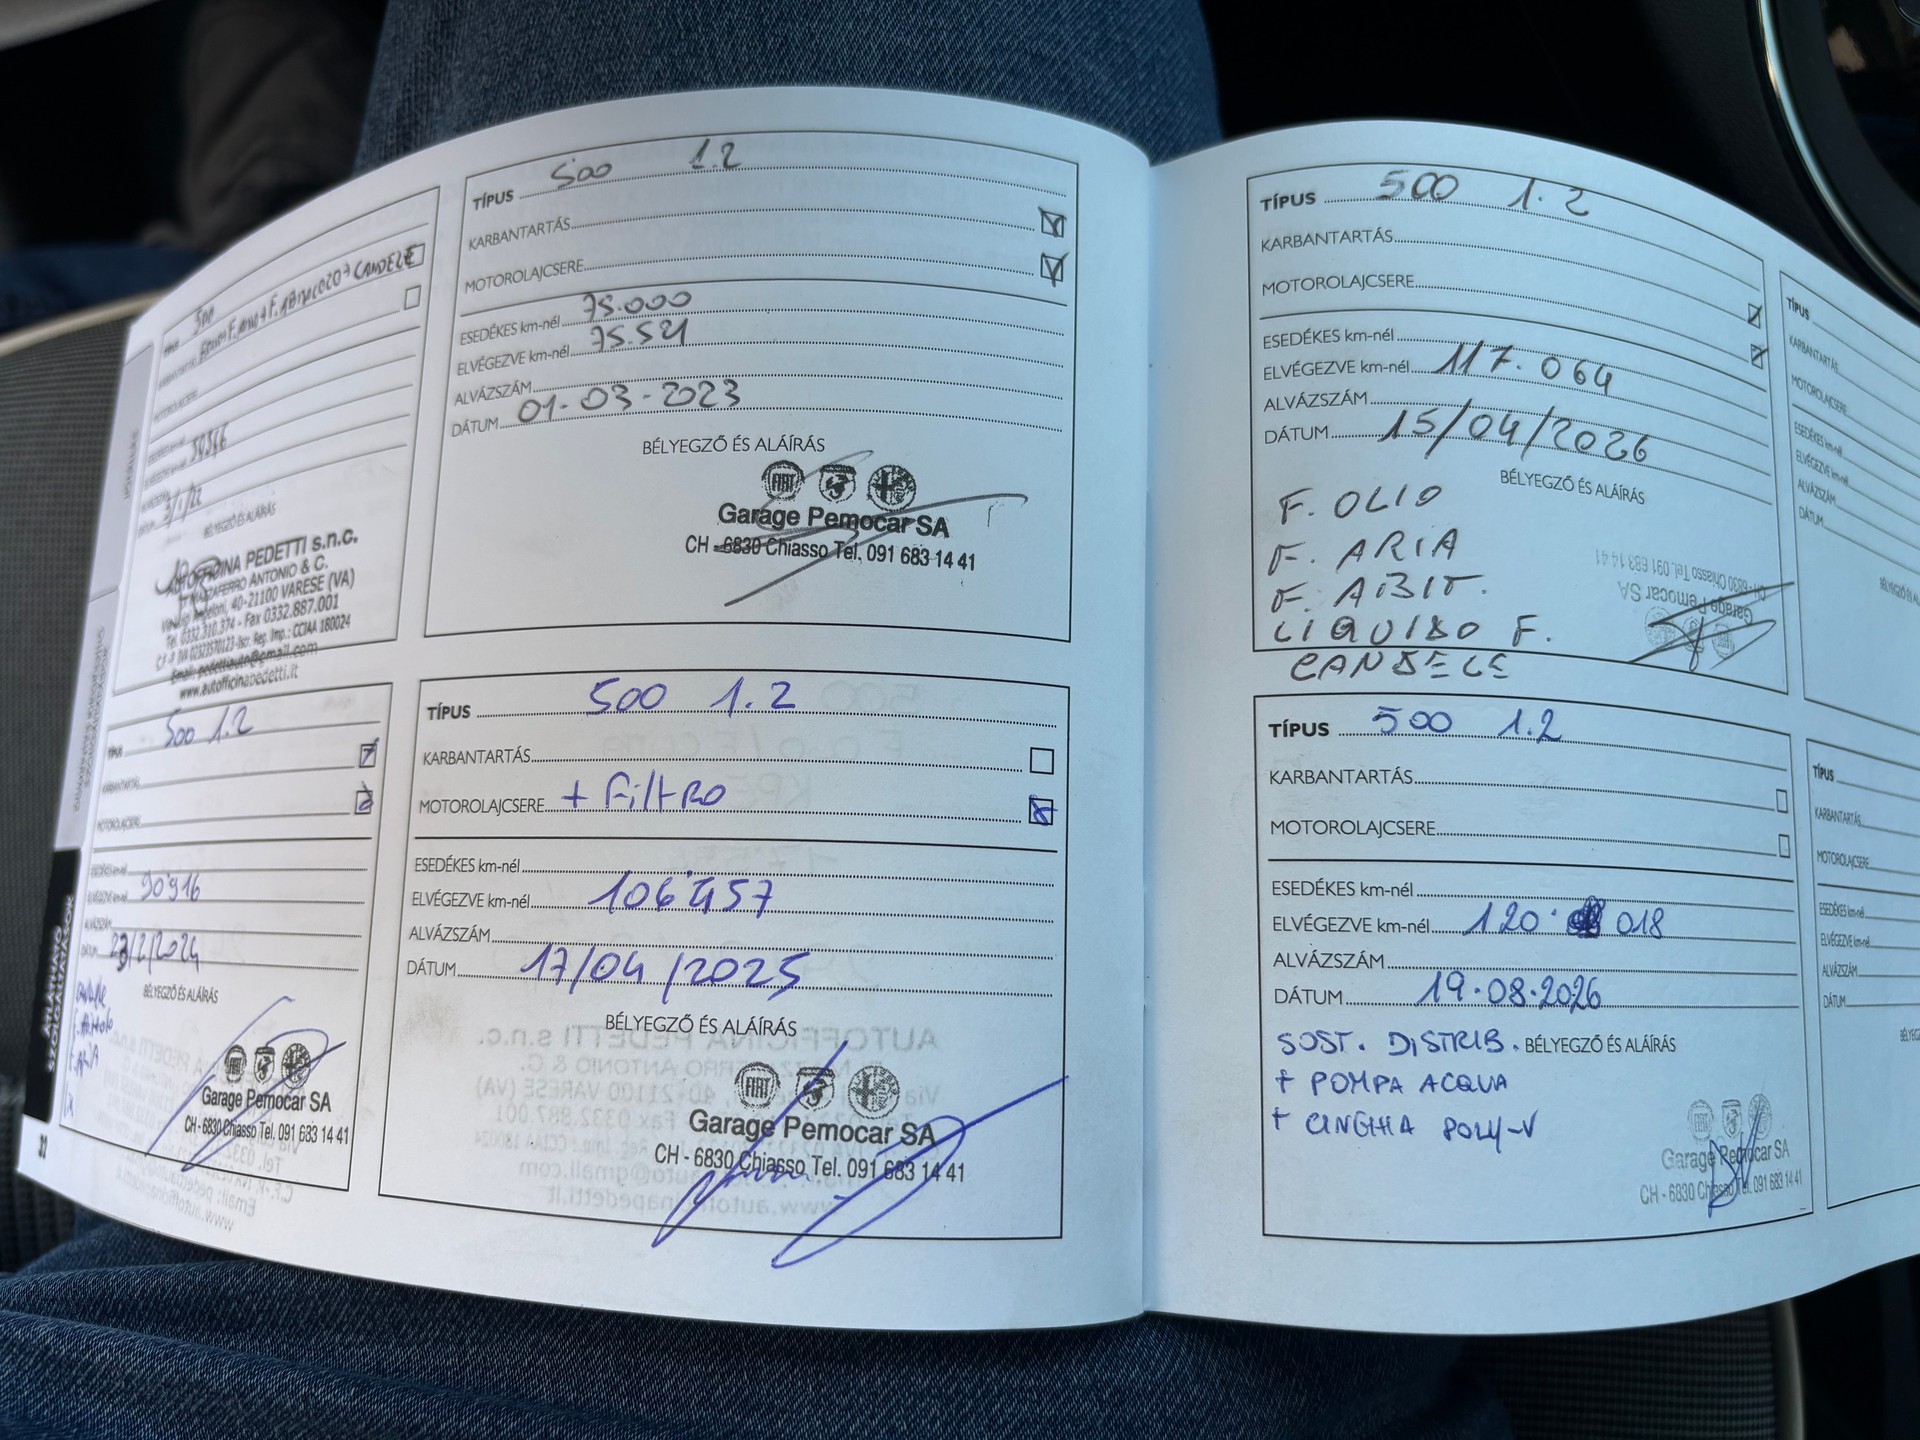 500
CANDELE
AUTOFFICINA PEDETTI s.n.c.
MAZZAFERRO ANTONIO & C.
40-21100 VARESE (VA)
Tel. 0332.310.374 - Fax 0332.887.001
CCIAA 180024
www.autofficinapedetti.it
TÍPUS 500 1.2
KARBANTARTÁS
MOTOROLAJCSERE
ESEDÉKES km-nél
ELVÉGEZVE km-nél 90'916
ALVÁZSZÁM
DÁTUM
BÉLYEGZŐ ÉS ALÁÍRÁS
FIAT
Garage Pemocar SA
CH - 6830 Chiasso Tel. 091 683 14 41
TÍPUS 500 1.2
KARBANTARTÁS
MOTOROLAJCSERE
ESEDÉKES km-nél 75.000
ELVÉGEZVE km-nél 75.521
ALVÁZSZÁM
DÁTUM 01-03-2023
BÉLYEGZŐ ÉS ALÁÍRÁS
FIAT
Garage Pemocar SA
CH - 6830 Chiasso Tel. 091 683 14 41
TÍPUS 500 1.2
KARBANTARTÁS
MOTOROLAJCSERE + Filtro
ESEDÉKES km-nél
ELVÉGEZVE km-nél 106'457
ALVÁZSZÁM
DÁTUM 17/04/2025
BÉLYEGZŐ ÉS ALÁÍRÁS
FIAT
Garage Pemocar SA
CH - 6830 Chiasso Tel. 091 683 14 41
TÍPUS 500 1.2
KARBANTARTÁS
MOTOROLAJCSERE
ESEDÉKES km-nél
ELVÉGEZVE km-nél 117.064
ALVÁZSZÁM
DÁTUM 15/04/2026
BÉLYEGZŐ ÉS ALÁÍRÁS
F. OLIO
F. ARIA
F. ABIT.
LIQUIDO F.
CANDELE
Garage Pemocar SA
CH - 6830 Chiasso Tel. 091 683 14 41
TÍPUS 500 1.2
KARBANTARTÁS
MOTOROLAJCSERE
ESEDÉKES km-nél
ELVÉGEZVE km-nél 120. 018
ALVÁZSZÁM
DÁTUM 19.08.2026
SOST. DISTRIB. BÉLYEGZŐ ÉS ALÁÍRÁS
+ POMPA ACQUA
+ CINGHIA POLY-V
Garage Pemocar SA
CH - 6830 Chiasso Tel. 091 683 14 41
TÍPUS
KARBANTARTÁS
MOTOROLAJCSERE
ESEDÉKES km-nél
ELVÉGEZVE km-nél
ALVÁZSZÁM
DÁTUM
TÍPUS
KARBANTARTÁS
MOTOROLAJCSERE
ESEDÉKES km-nél
ELVÉGEZVE km-nél
ALVÁZSZÁM
DÁTUM